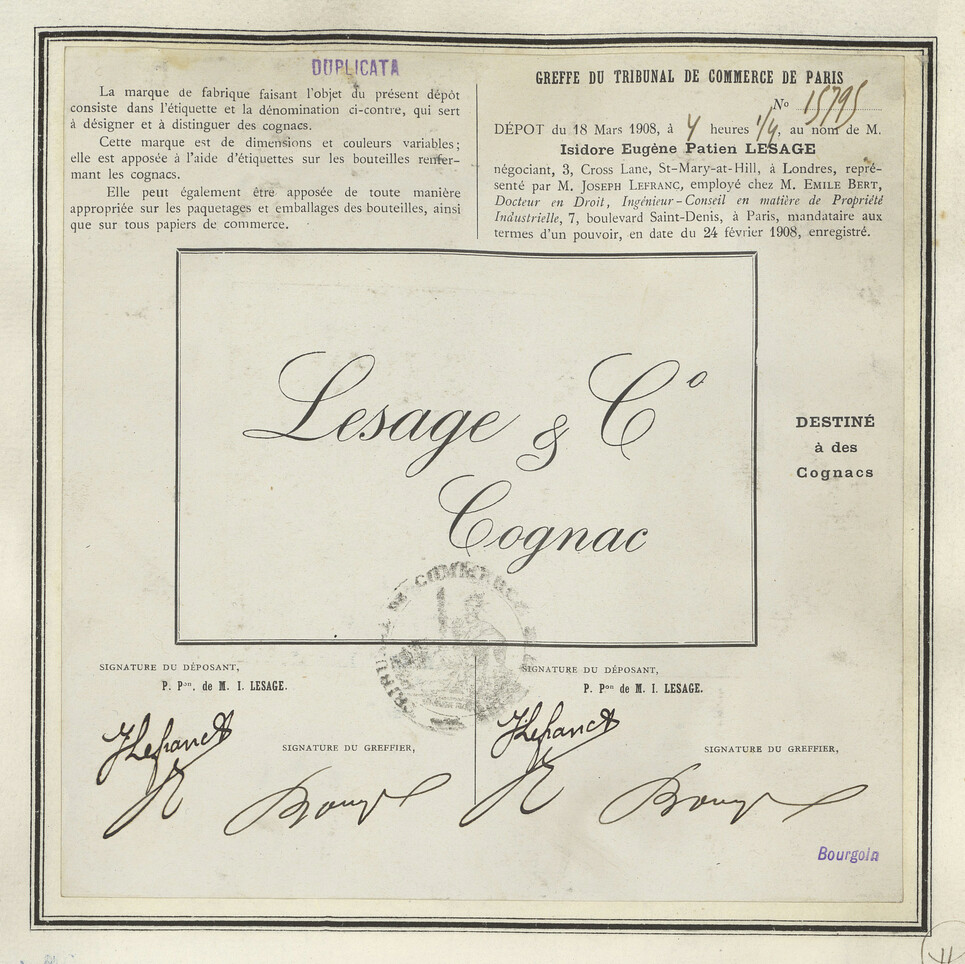 DUPLICATA
La marque de fabrique faisant l'objet du présent dépôt
consiste dans l'étiquette et la dénomination ci-contre, qui sert
à désigner et à distinguer des cognacs.
Cette marque est de dimensions et couleurs variables;
elle est apposée à l'aide d'étiquettes sur les bouteilles renfer-
mant les cognacs.
Elle peut également être apposée de toute manière
appropriée sur les paquetages et emballages des bouteilles, ainsi
que sur tous papiers de commerce.
GREFFE DU TRIBUNAL DE COMMERCE DE PARIS
No 15795
DÉPOT du 18 Mars 1908, à 4 heures 1/4, au nom de M.
Isidore Eugène Patien LESAGE
négociant, 3, Cross Lane, St-Mary-at-Hill, à Londres, repré-
senté par M. JOSEPH LEFRANC, employé chez M. EMILE BERT,
Docteur en Droit, Ingénieur-Conseil en matière de Propriété
Industrielle, 7, boulevard Saint-Denis, à Paris, mandataire aux
termes d'un pouvoir, en date du 24 février 1908, enregistré.
Lesage & Co
Cognac
DESTINÉ
à des
Cognacs
SIGNATURE DU DÉPOSANT,
P. Pon. de M. I. LESAGE.
JLefranc
SIGNATURE DU GREFFIER,
SIGNATURE DU DÉPOSANT,
P. Pon de M. I. LESAGE.
JLefranc
SIGNATURE DU GREFFIER,
Bourgoin